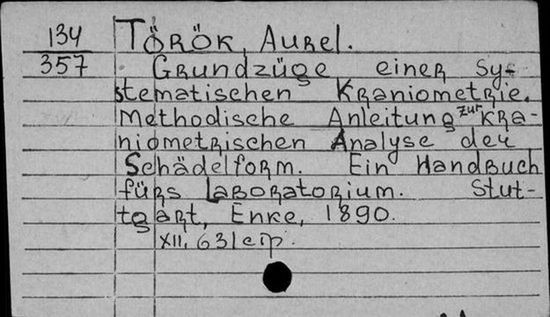 134
357
TÖRÖK, Aurel.
Grundzüge einer Sy-
stematischen Kraniometrie.
Methodische Anleitung zur kra-
niometrischen Analyse der
Schädelform. Ein Handbuch
fürs Laboratorium. Stut-
tgart, Enke, 1890.
XII, 631 стр.